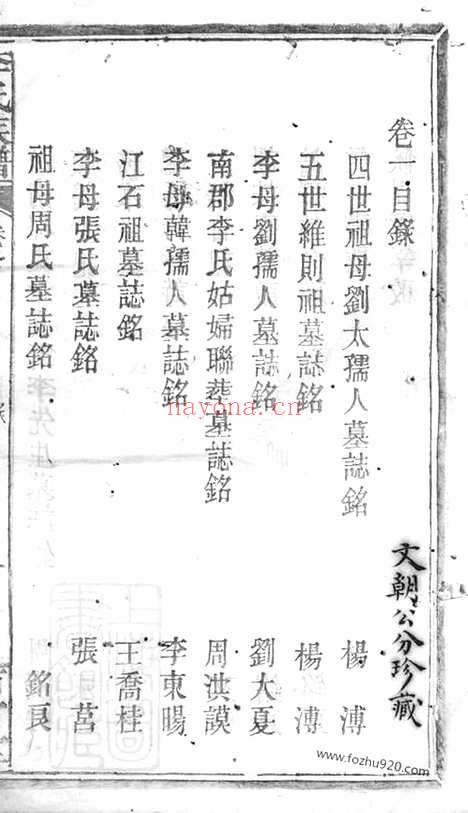 卷一目錄
四世祖母劉太孺人墓誌銘 楊溥
五世維則祖墓誌銘 楊溥
李母劉孺人墓誌銘 劉大夏
南郡李氏姑婦聯葬墓誌銘 周洪謨
李母韓孺人墓誌銘 李東暘
江石祖墓誌銘 王喬桂
李母張氏墓誌銘 張莒
祖母周氏墓誌銘
文朝公分珍藏
nayona.cn
www.fozhu920.com